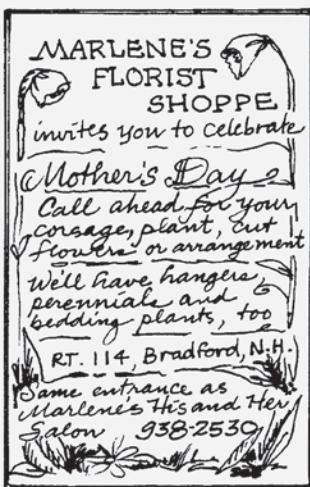 MARLENE'S
FLORIST
SHOPPE
invites you to celebrate
Mother's Day
Call ahead for your
corsage, plant, cut
flowers or arrangement
We'll have hangers,
perennials and
bedding plants, too
RT. 114, Bradford, N.H.
Same entrance as
Marlene's His and Her
Salon 938-2530